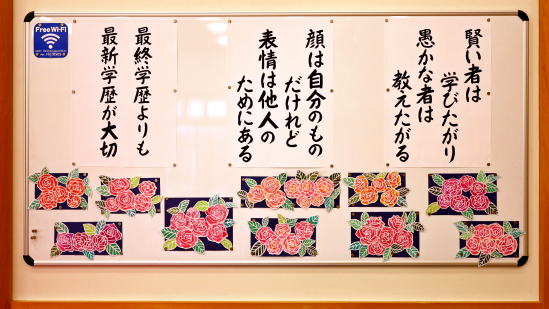 賢い者は
学びたがり
愚かな者は
教えたがる
顔は自分のもの
だけれど
表情は他人の
ためにある
最終学歴よりも
最新学歴が大切
Free Wi-Fi